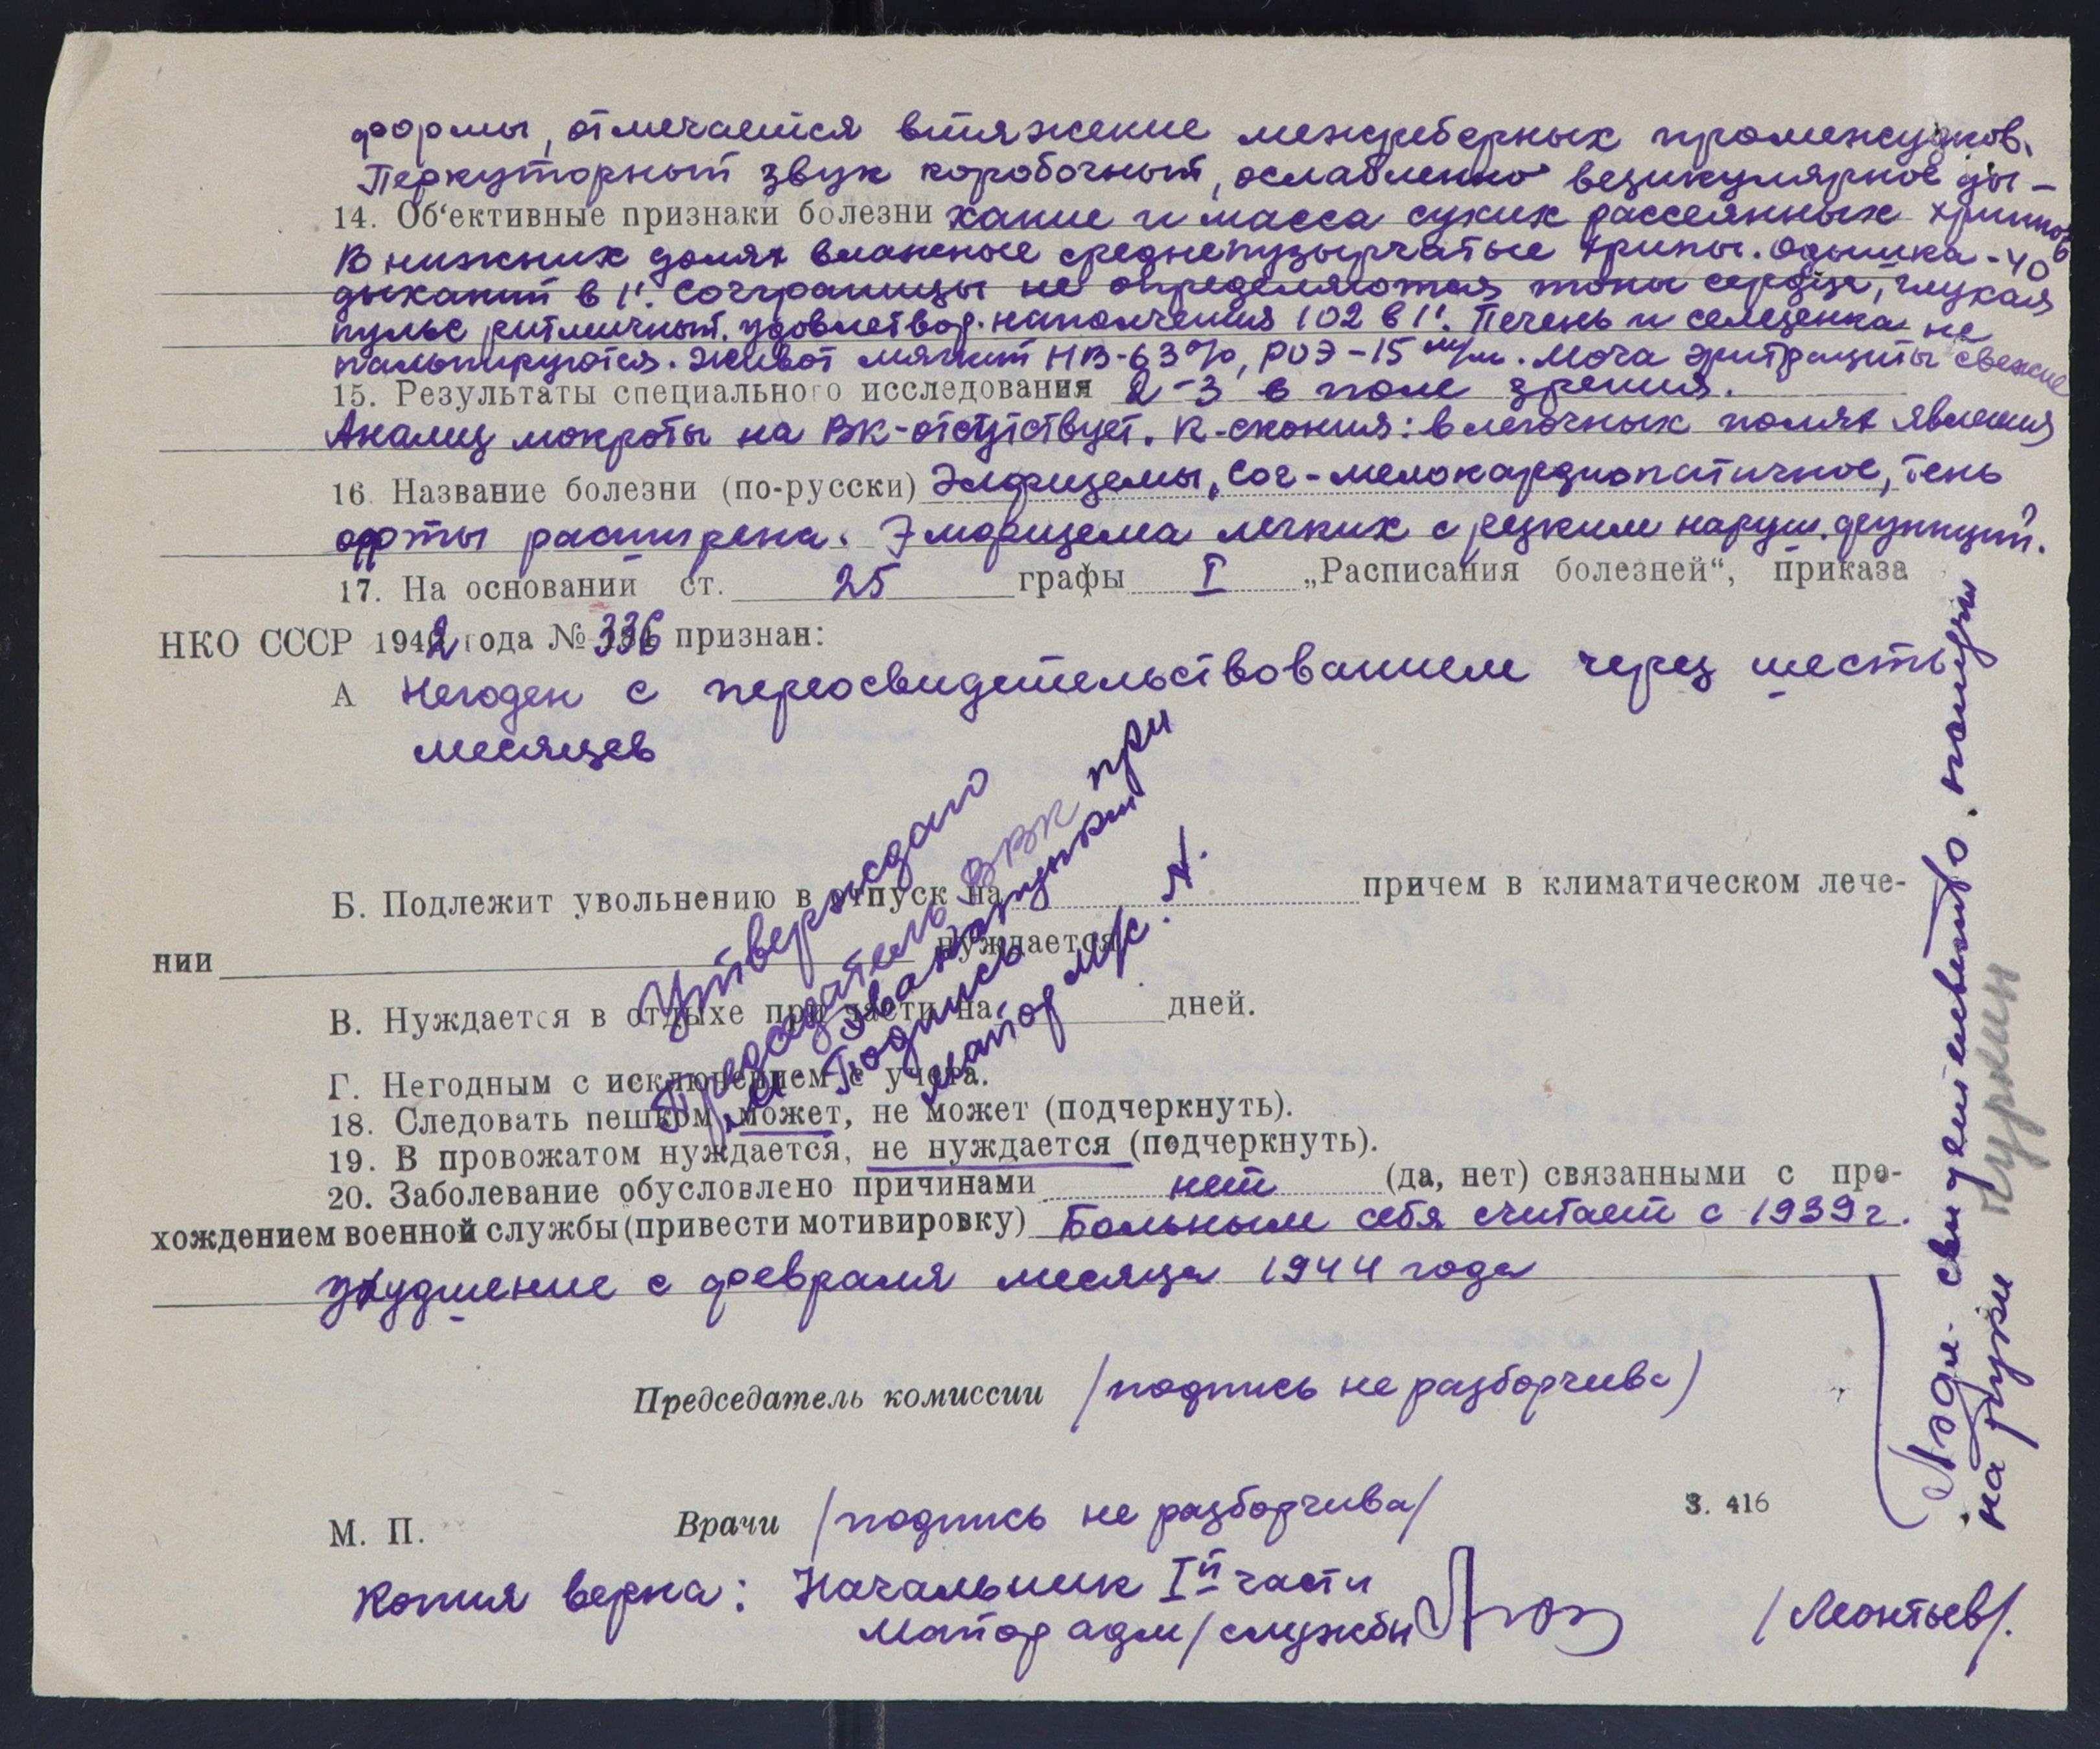 формы, отмечается втяжение межреберных промежудков.
Перкуторный звук коробочный, ослабленно везикулярное ды-
14. Об'ективные признаки болезни хание и масса сухих рассеянных хрипов
В нижних долях влажные среднепузырчатые хрипы. Одышка - 40
дыханий в 1'. Сог границы не определяются тоны сердца, глухая
пульс ритмичный. удовлетвор. наполнения 102 в 1'. Печень и селезенка не
пальпируются. Живот мягкий НВ-63%, РОЭ-15 м/м. Моча эритроциты свежие
15. Результаты специального исследования 2-3 в поле зрения.
Анализ мокроты на ВК-отстутствует. R-скопия: в легочных полях явления
16. Название болезни (по-русски) Эмфиземы, Сог-мелокардиопатичное, тень
аорты расширена. Эмфизема легких с резким наруш. функций.
17. На основании ст. 25 графы I „Расписания болезней“, приказа
НКО СССР 1942 года № 336 признан:
А Негоден с переосвидетельствованием через шесть
месяцев
Утверждаю
Председатель ВВК при
эвакопункт
Подпись
майор м/с. А.
Б. Подлежит увольнению в отпуск на причем в климатическом лече-
нии нуждается
В. Нуждается в отдыхе при части на дней.
Г. Негодным с исключением с учета.
18. Следовать пешком может, не может (подчеркнуть).
19. В провожатом нуждается, не нуждается (подчеркнуть).
20. Заболевание обусловлено причинами нет (да, нет) связанными с про-
хождением военной службы (привести мотивировку) Больным себя считает с 1939 г.
ухудшение с февраля месяца 1944 года
Председатель комиссии /подпись не разборчива/
М. П. Врачи /подпись не разборчива/ З. 416
Копия верна: Начальник Iй части
Майор адм/службы /Леонтьев/.
на руки